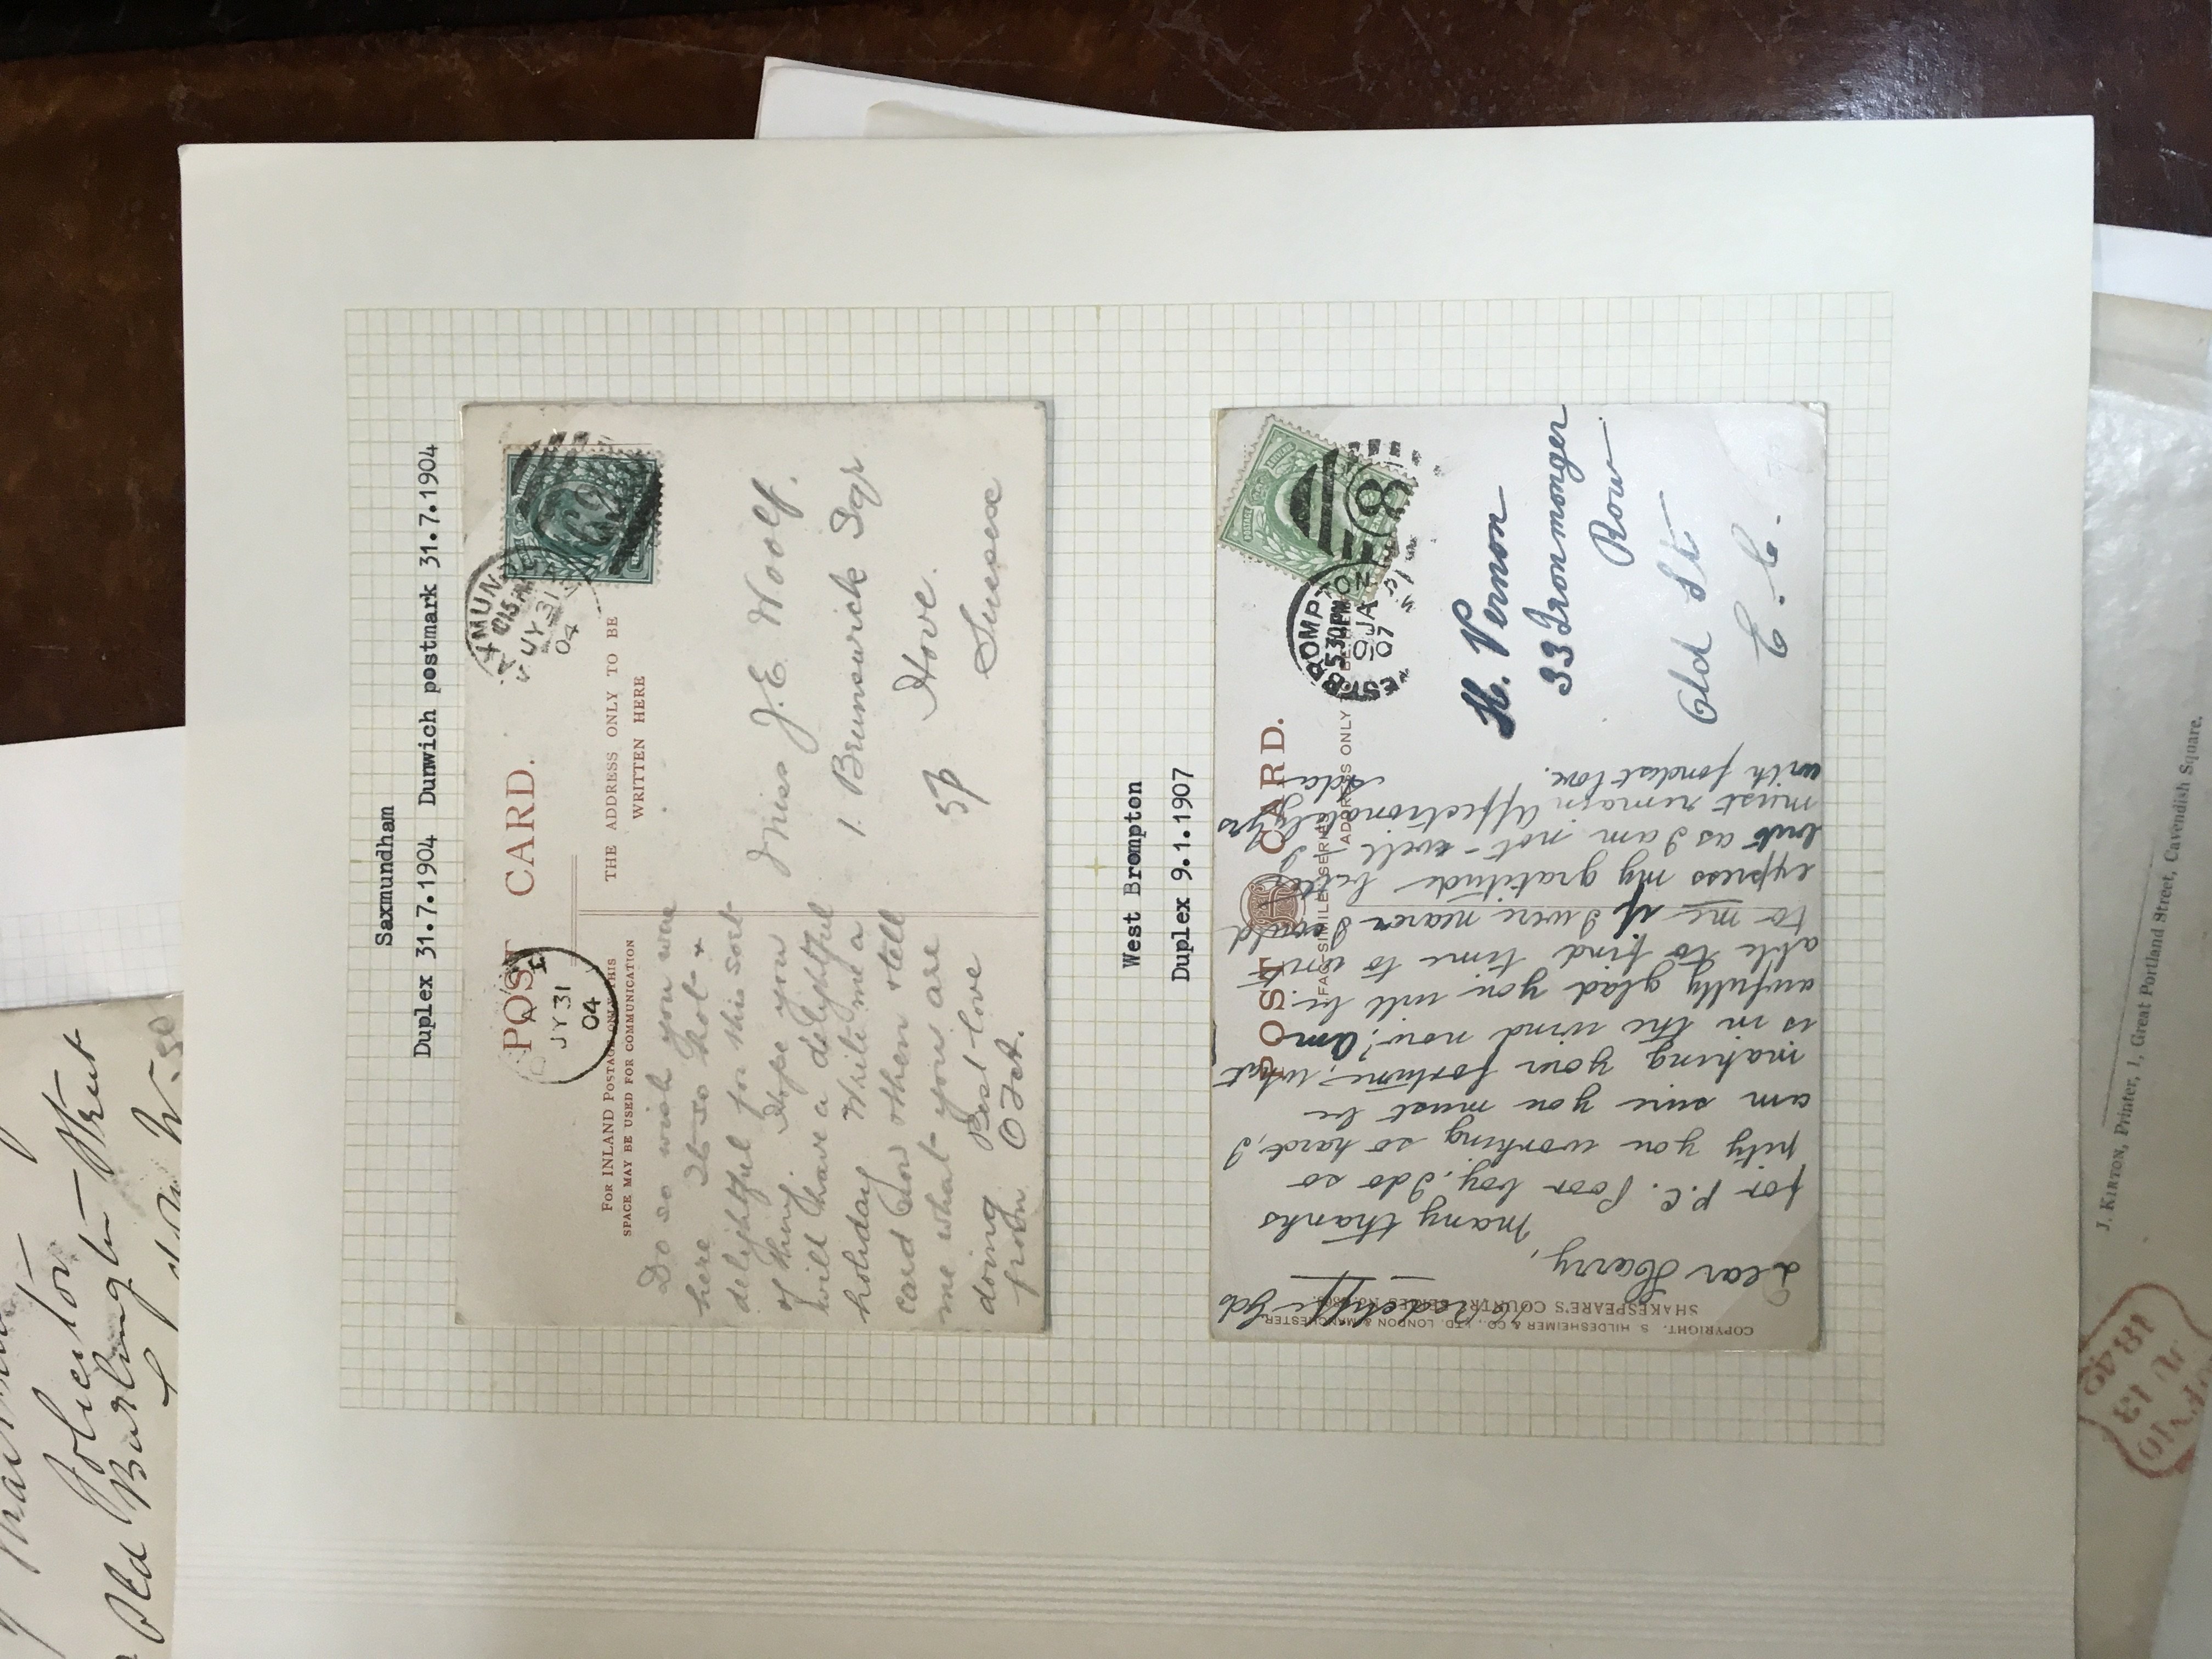 Saxmundham
Duplex 31.7.1904 Dunwich postmark 31.7.1904
POST CARD.
FOR INLAND POSTAGE ONLY THIS
SPACE MAY BE USED FOR COMMUNICATION
THE ADDRESS ONLY TO BE
WRITTEN HERE
JY 31
04
JY 31
04
Do so wish you were
here It is so hot +
delightful for this sort
of thing. Hope you
will have a delightful
holiday Write me a
card now + then + tell
me what you are
doing Best love
from
Miss J. E. Woolf.
1. Brunswick Sqr
Hove.
Sussex
West Brompton
Duplex 9.1.1907
POST CARD.
FAC-SIMILE SERIES
ADDRESS ONLY
WEST BROMPTON
5.30PM
JA
07
8
H. Vernon
33 Ironmonger
Row
Old St
E. C.
COPYRIGHT. S. HILDESHEIMER & CO., LTD. LONDON & MANCHESTER.
SHAKESPEARE'S COUNTRY SERIES
Radclyffe Gds
Dear Harry,
Many thanks
for P.C. Poor boy, I do so
pity you working so hard, I
am sure you must be
making your fortune, what
is in the wind now? Am
awfully glad you will be
able to find time to write
to me if I were nearer I could
express my gratitude better
but as I am not - well I
must remain affectionately yrs
with fondest love. Ada
J. KIRTON, Printer, 1, Great Portland Street, Cavendish Square.
Old Burlington Street